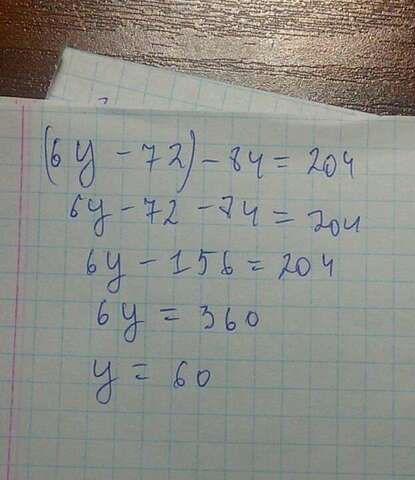 (6y - 72) - 84 = 204
6y - 72 - 84 = 204
6y - 156 = 204
6y = 360
y = 60